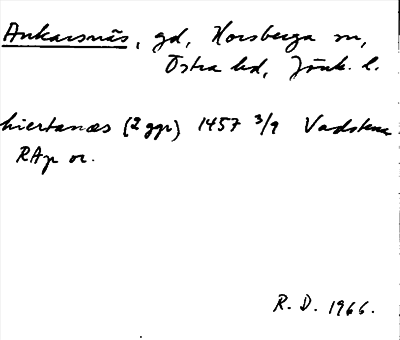 Ankarsnäs, gd, Horsberga sn,
Östra hd, Jönk. l.
hiertanæs (2 ggr) 1457 3/9 Vadstena
RAp or.
R. D. 1966.